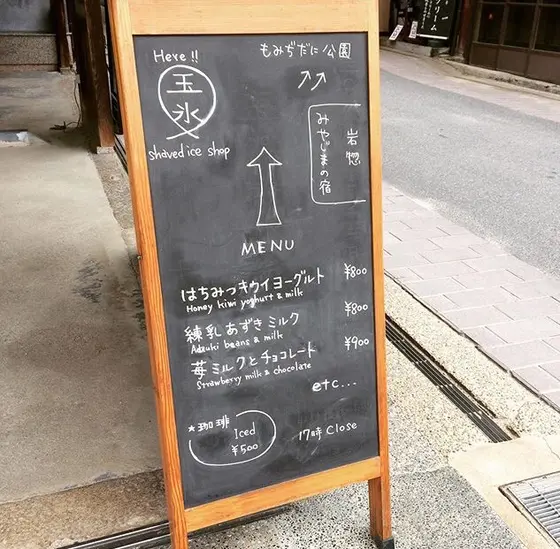 Here!!
玉氷
shaved ice shop
もみぢだに公園
岩惣
みやじまの宿
MENU
はちみつキウイヨーグルト ¥800
Honey kiwi yoghurt & milk
練乳あずきミルク ¥800
Adzuki beans & milk
苺ミルクとチョコレート ¥900
Strawberry milk & chocolate
etc...
★珈琲
Iced
¥500
17時 Close